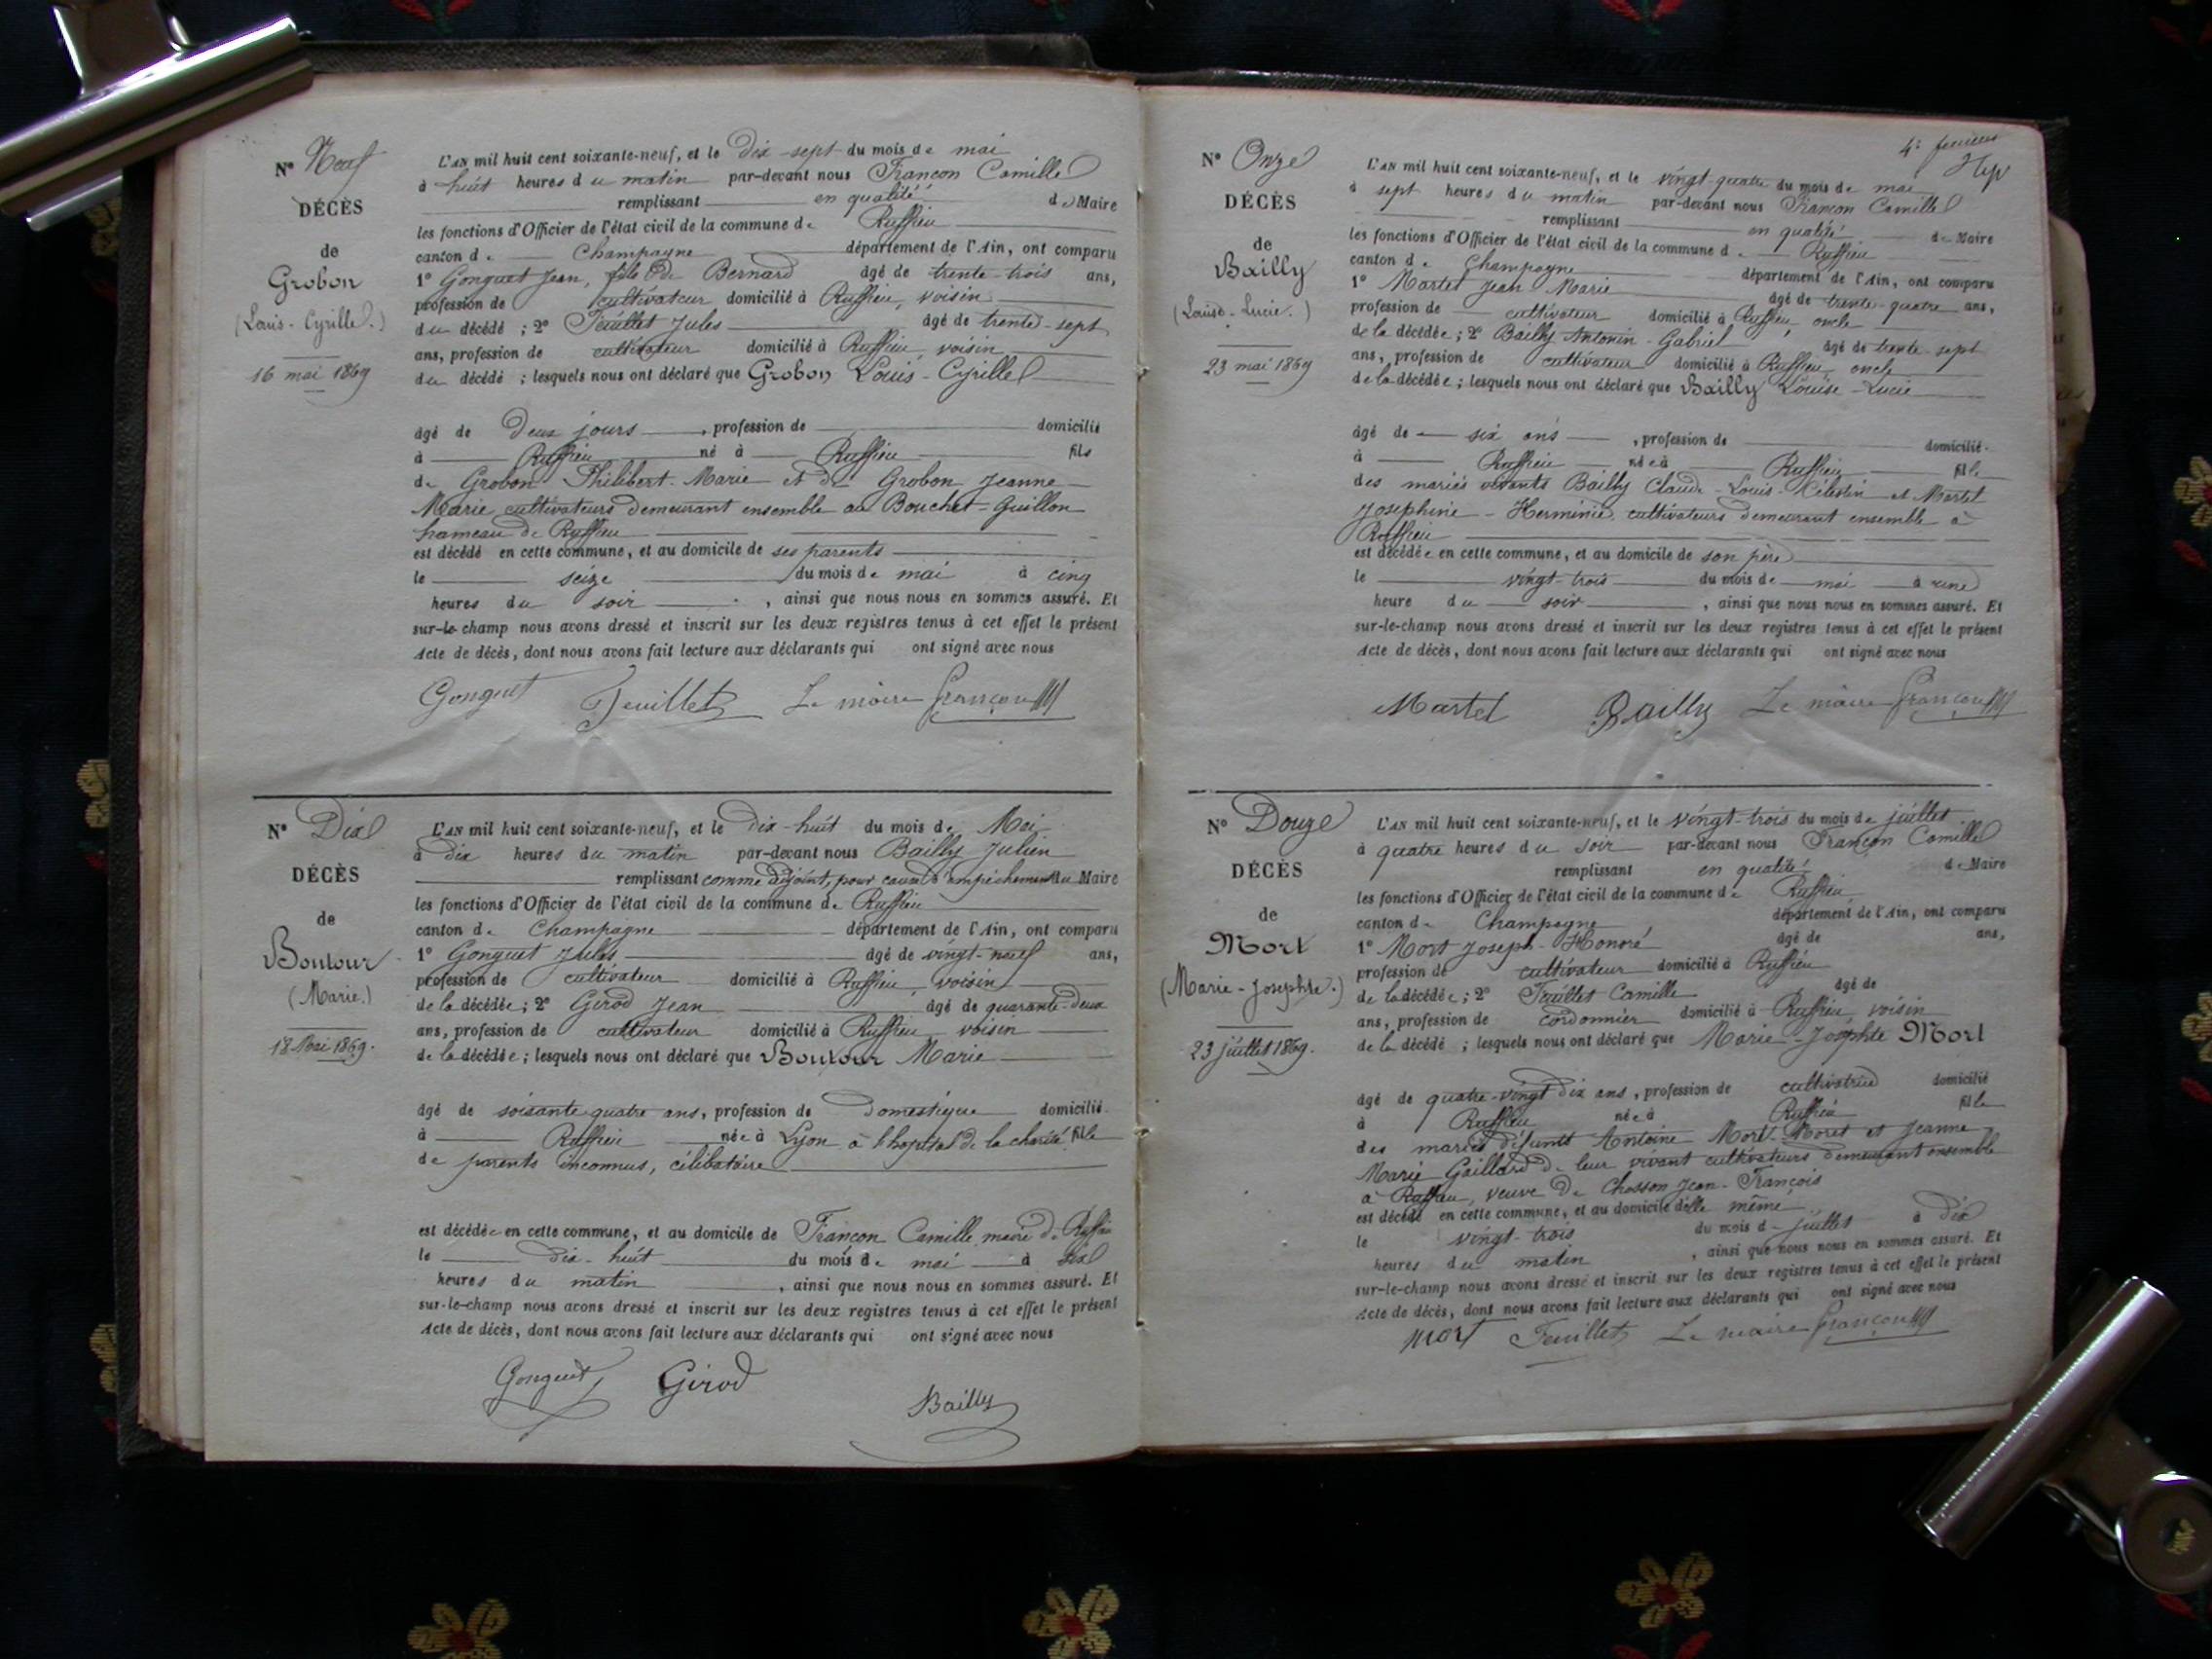 N° Neuf
DÉCÈS
de
Grobon
(Louis-Cyrille.)
16 mai 1869
L'AN mil huit cent soixante-neuf, et le dix-sept du mois de mai
à huit heures du matin par-devant nous Françon Camille
remplissant en qualité de Maire
les fonctions d'Officier de l'état civil de la commune de Ruffieu
canton de Champagne département de l'Ain, ont comparu
1° Gonguet Jean, fils de Bernard âgé de trente-trois ans,
profession de cultivateur domicilié à Ruffieu, voisin
du décédé ; 2° Feuillet Jules âgé de trente-sept
ans, profession de cultivateur domicilié à Ruffieu voisin
du décédé ; lesquels nous ont déclaré que Grobon Louis-Cyrille
âgé de deux jours, profession de domicilié
à Ruffieu né à Ruffieu fils
de Grobon Philibert-Marie et de Grobon Jeanne-
Marie, cultivateurs demeurant ensemble au Bouchet-Guillon
hameau de Ruffieu
est décédé en cette commune, et au domicile de ses parents
le seize du mois de mai à cinq
heures du soir, ainsi que nous nous en sommes assuré. Et
sur-le-champ nous avons dressé et inscrit sur les deux registres tenus à cet effet le présent
Acte de décès, dont nous avons fait lecture aux déclarants qui ont signé avec nous
Gonguet Feuillet Le maire Françon
N° Dix
DÉCÈS
de
Boutour
(Marie.)
18 Mai 1869.
L'AN mil huit cent soixante-neuf, et le dix-huit du mois de Mai
à dix heures du matin par-devant nous Bailly Julien
remplissant comme adjoint, pour cause d'empêchement du Maire
les fonctions d'Officier de l'état civil de la commune de Ruffieu
canton de Champagne département de l'Ain, ont comparu
1° Gonguet Jules âgé de vingt-neuf ans,
profession de cultivateur domicilié à Ruffieu, voisin
de la décédée ; 2° Girod Jean âgé de quarante-deux
ans, profession de cultivateur domicilié à Ruffieu voisin
de la décédée ; lesquels nous ont déclaré que Boutour Marie
âgé de soixante quatre ans, profession de domestique domicilié
à Ruffieu née à Lyon à l'hopital de la charité fille
de parents inconnus, célibataire
est décédée en cette commune, et au domicile de Françon Camille maire de Ruffieu
le dix-huit du mois de mai à six
heures du matin, ainsi que nous nous en sommes assuré. Et
sur-le-champ nous avons dressé et inscrit sur les deux registres tenus à cet effet le présent
Acte de décès, dont nous avons fait lecture aux déclarants qui ont signé avec nous
Gonguet Girod Bailly
4e
N° Onze
DÉCÈS
de
Bailly
(Louise-Lucie.)
23 mai 1869
L'AN mil huit cent soixante-neuf, et le vingt-quatre du mois de mai
à sept heures du matin par-devant nous Françon Camille
remplissant en qualité de Maire
les fonctions d'Officier de l'état civil de la commune de Ruffieu
canton de Champagne département de l'Ain, ont comparu
1° Martel Jean Marie âgé de trente-quatre ans,
profession de cultivateur domicilié à Ruffieu, oncle
de la décédée ; 2° Bailly Antonin-Gabriel âgé de trente-sept
ans, profession de cultivateur domicilié à Ruffieu oncle
de la décédée ; lesquels nous ont déclaré que Bailly Louise-Lucie
âgé de six ans, profession de domicilié
à Ruffieu née à Ruffieu fille
des mariés vivants Bailly Claude-Louis-Célestin et Martel
Josephine-Herminie, cultivateurs demeurant ensemble à
Ruffieu
est décédée en cette commune, et au domicile de son père
le vingt-trois du mois de mai à une
heure du soir, ainsi que nous nous en sommes assuré. Et
sur-le-champ nous avons dressé et inscrit sur les deux registres tenus à cet effet le présent
Acte de décès, dont nous avons fait lecture aux déclarants qui ont signé avec nous
Martel Bailly Le maire Françon
N° Douze
DÉCÈS
de
Mort
(Marie-Josephte.)
23 juillet 1869.
L'AN mil huit cent soixante-neuf, et le vingt-trois du mois de juillet
à quatre heures du soir par-devant nous Françon Camille
remplissant en qualité de Maire
les fonctions d'Officier de l'état civil de la commune de Ruffieu
canton de Champagne département de l'Ain, ont comparu
1° Mort Joseph-Honoré âgé de ans,
profession de cultivateur domicilié à Ruffieu
de la décédée ; 2° Feuillet Camille âgé de
ans, profession de cordonnier domicilié à Ruffieu voisin
de la décédé ; lesquels nous ont déclaré que Marie-Josephte Mort
âgé de quatre-vingt dix ans, profession de cultivatrice domicilié
à Ruffieu née à Ruffieu fille
des mariés défunts Antoine Mort-Moret et Jeanne
Marie Gaillard de leur vivant cultivateurs demeurant ensemble
à Ruffieu, veuve de Chosson Jean-François
est décédé en cette commune, et au domicile d'elle même
le vingt-trois du mois de juillet à dix
heures du matin, ainsi que nous nous en sommes assuré. Et
sur-le-champ nous avons dressé et inscrit sur les deux registres tenus à cet effet le présent
Acte de décès, dont nous avons fait lecture aux déclarants qui ont signé avec nous
Mort Feuillet Le maire Françon